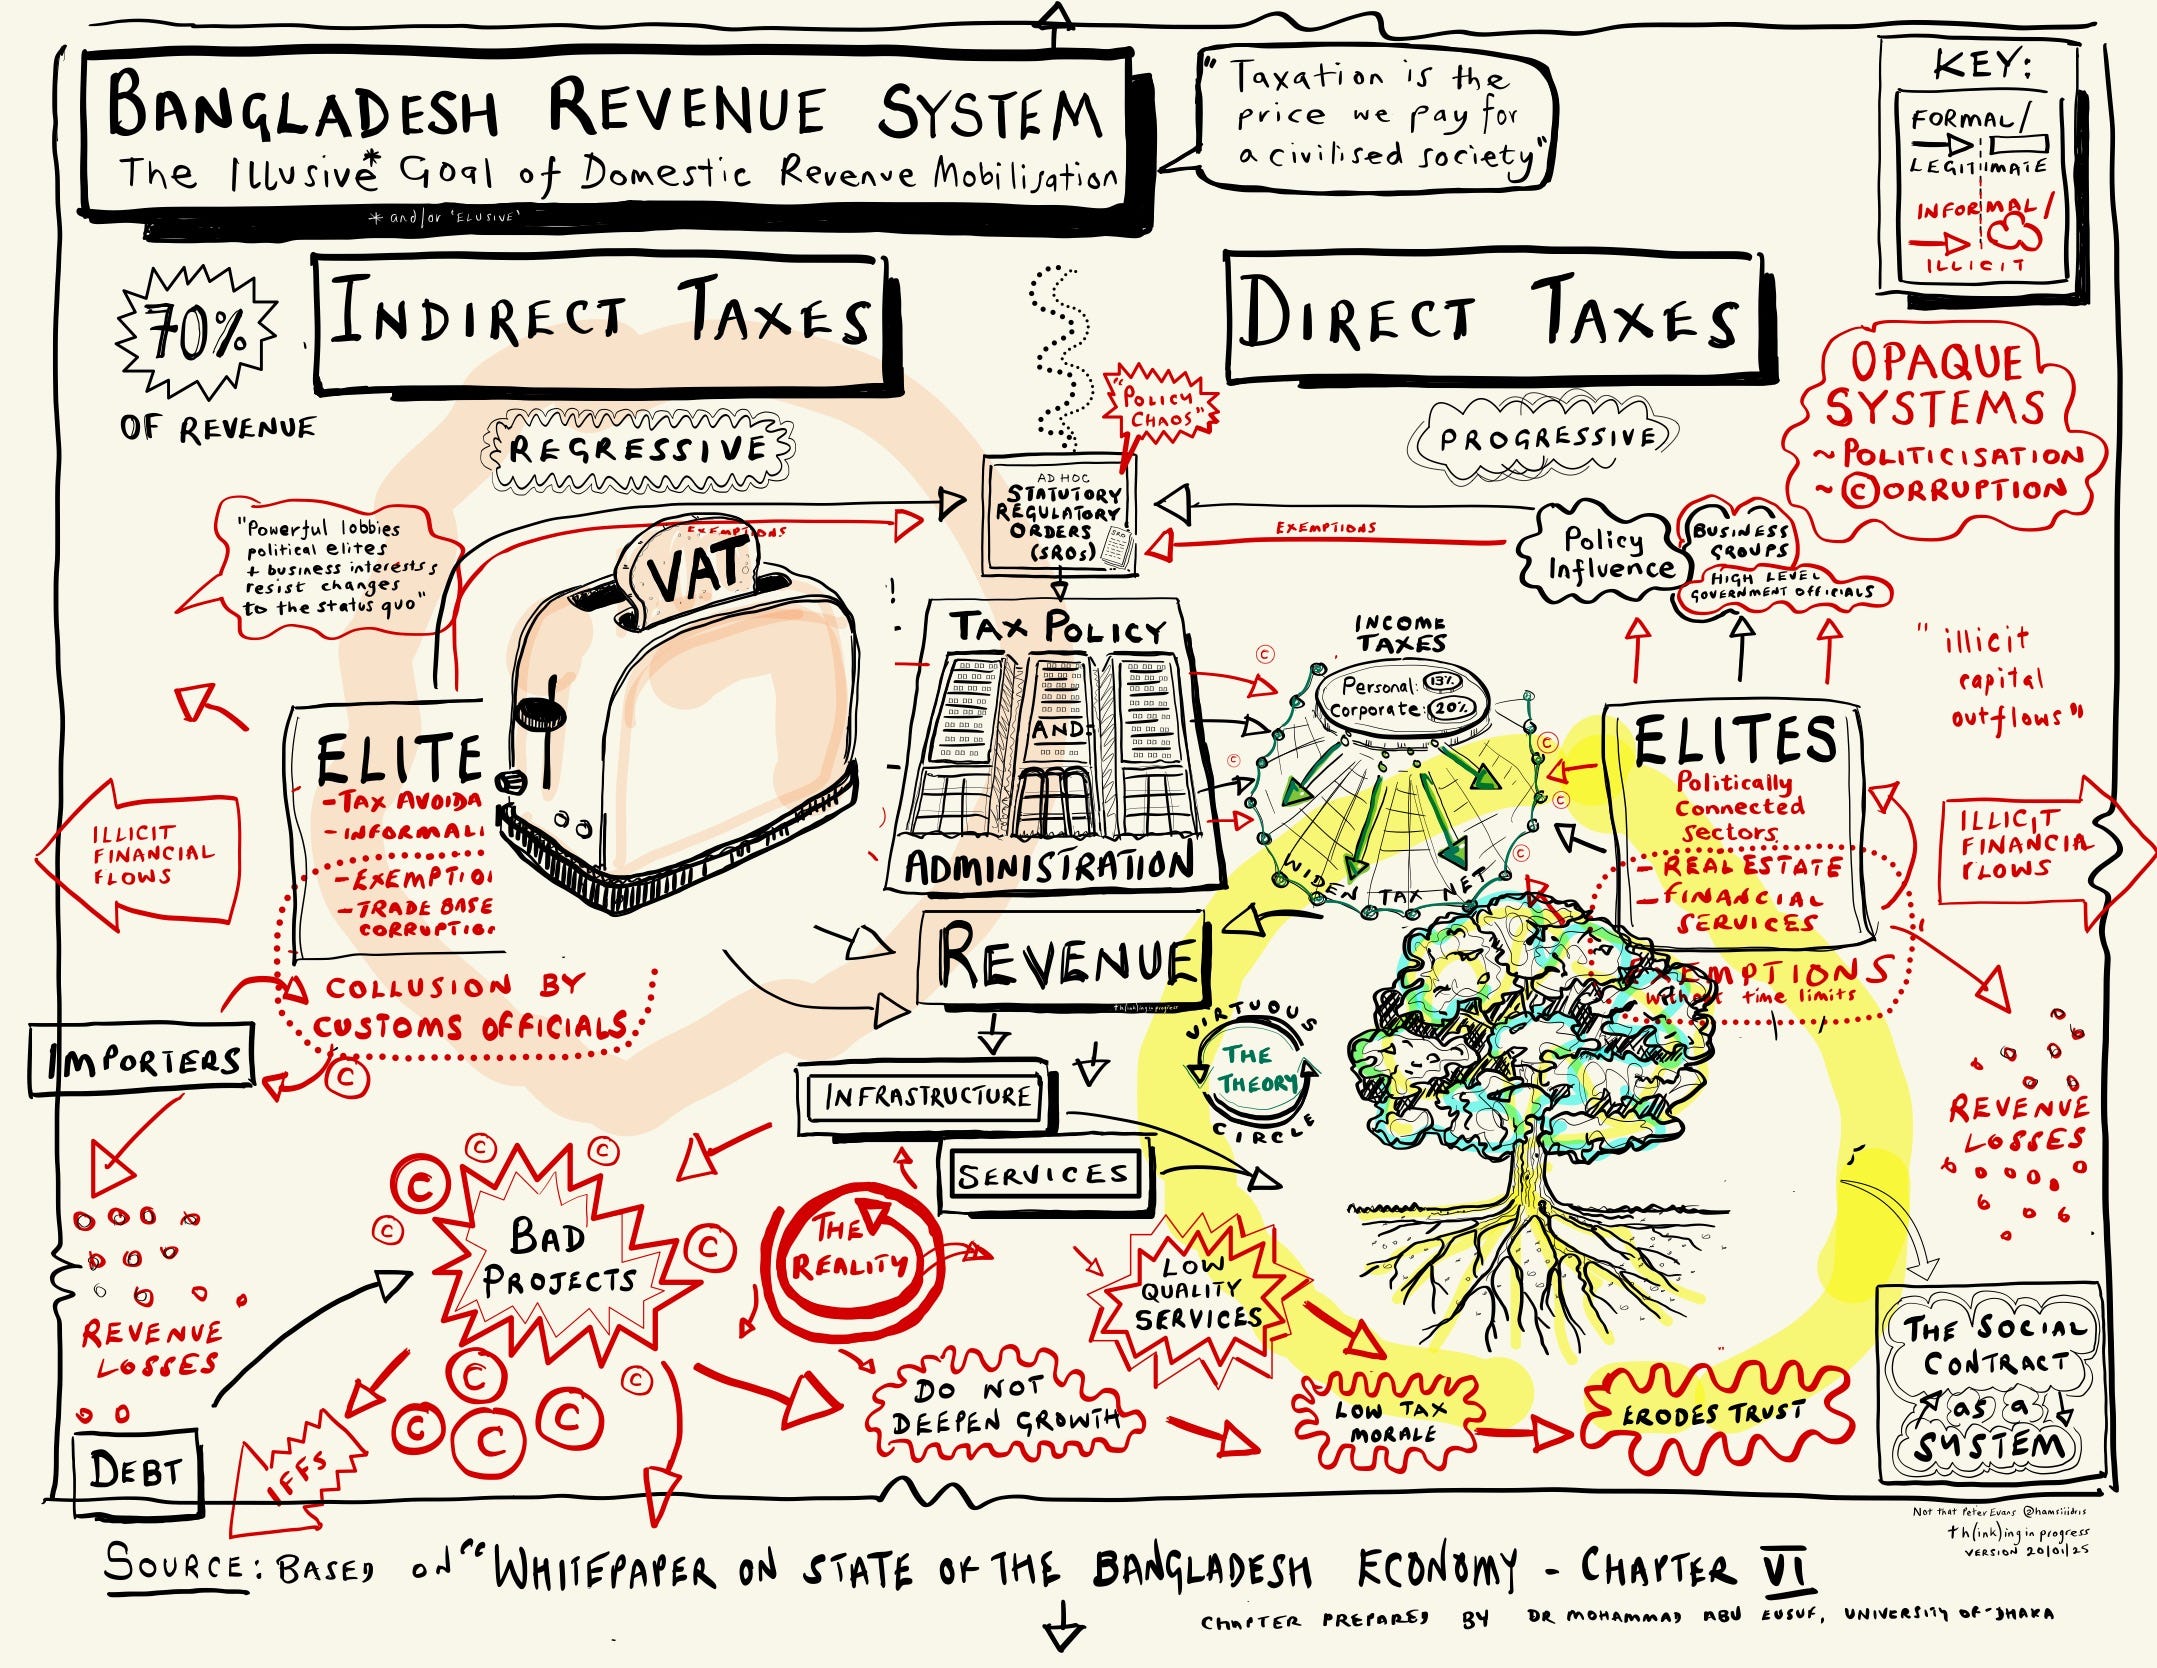 BANGLADESH REVENUE SYSTEM
The Illusive* Goal of Domestic Revenue Mobilisation
* and/or 'ELUSIVE'
"Taxation is the
price we pay for
a civilised society"
KEY:
FORMAL/
LEGITIMATE
INFORMAL/
ILLICIT
70%
OF REVENUE
INDIRECT TAXES
REGRESSIVE
DIRECT TAXES
PROGRESSIVE
"POLICY
CHAOS"
OPAQUE
SYSTEMS
~ POLITICISATION
~ ©ORRUPTION
AD HOC
STATUTORY
REGULATORY
ORDERS
(SROs)
SRO
EXEMPTIONS
EXEMPTIONS
"Powerful lobbies
political elites
+ business interests
resist changes
to the status quo"
VAT
Policy
Influence
BUSINESS
GROUPS
HIGH LEVEL
GOVERNMENT OFFICIALS
"illicit
capital
outflows"
TAX POLICY
AND
ADMINISTRATION
INCOME
TAXES
Personal: 13%
Corporate: 20%
WIDEN TAX NET
©
©
©
©
©
ELITE
- TAX AVOIDA
- INFORMALI
- EXEMPTIO
- TRADE BASE
CORRUPTION
COLLUSION BY
CUSTOMS OFFICIALS
©
ILLICIT
FINANCIAL
FLOWS
IMPORTERS
ELITES
Politically
Connected
Sectors
- REAL ESTATE
- FINANCIAL
SERVICES
EXEMPTIONS
without time limits
ILLICIT
FINANCIAL
FLOWS
REVENUE
LOSSES
REVENUE
th(ink)ing in progress
VIRTUOUS
THE
THEORY
CIRCLE
INFRASTRUCTURE
SERVICES
BAD
PROJECTS
©
©
©
©
©
©
©
©
©
©
©
THE
REALITY
LOW
QUALITY
SERVICES
REVENUE
LOSSES
DEBT
IFFS
DO NOT
DEEPEN GROWTH
LOW TAX
MORALE
ERODES TRUST
THE SOCIAL
CONTRACT
as a
SYSTEM
Not that Peter Evans @hamsiiidris
th(ink)ing in progress
VERSION 20/01/25
SOURCE: BASED ON "WHITEPAPER ON STATE OF THE BANGLADESH ECONOMY - CHAPTER VI
CHAPTER PREPARED BY DR MOHAMMAD ABU EUSUF, UNIVERSITY OF DHAKA